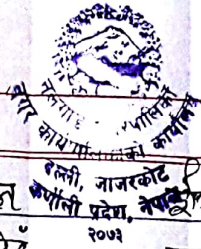 नलगाड नगरपालिका
नगर कार्यपालिकाको कार्यालय
दल्ली, जाजरकोट
कर्णाली प्रदेश, नेपाल
२०७३